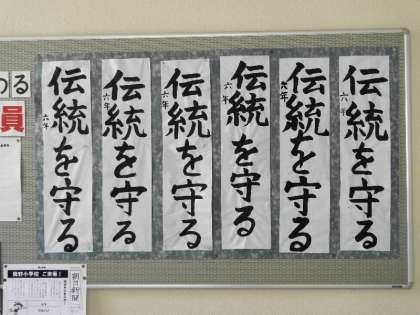 伝統を守る
六年
伝統を守る
六年
伝統を守る
六年
伝統を守る
六年
伝統を守る
六年
伝統を守る
六年
める
員
朝日新聞